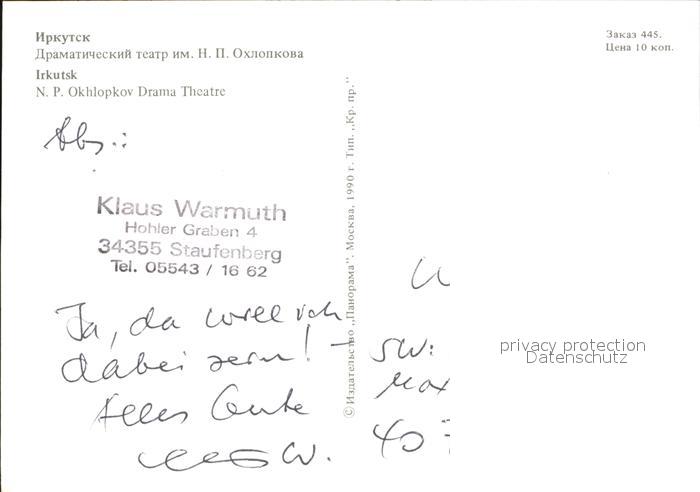 Иркутск
Драматический театр им. Н. П. Охлопкова
Irkutsk
N. P. Okhlopkov Drama Theatre
Заказ 445.
Цена 10 коп.
Abs.:
Klaus Warmuth
Hohler Graben 4
34355 Staufenberg
Tel. 05543 / 16 62
Ja, da will ich
dabei sein! –
Alles Gute
W.
© Издательство „Панорама". Москва, 1990 г. Тип. „Кр. пр."
SW:
40
privacy protection
Datenschutz